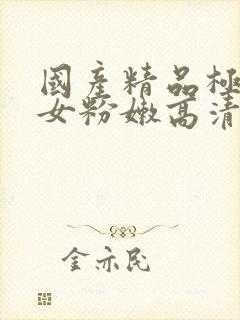 國產精品極
女粉嫩高清
金亦民